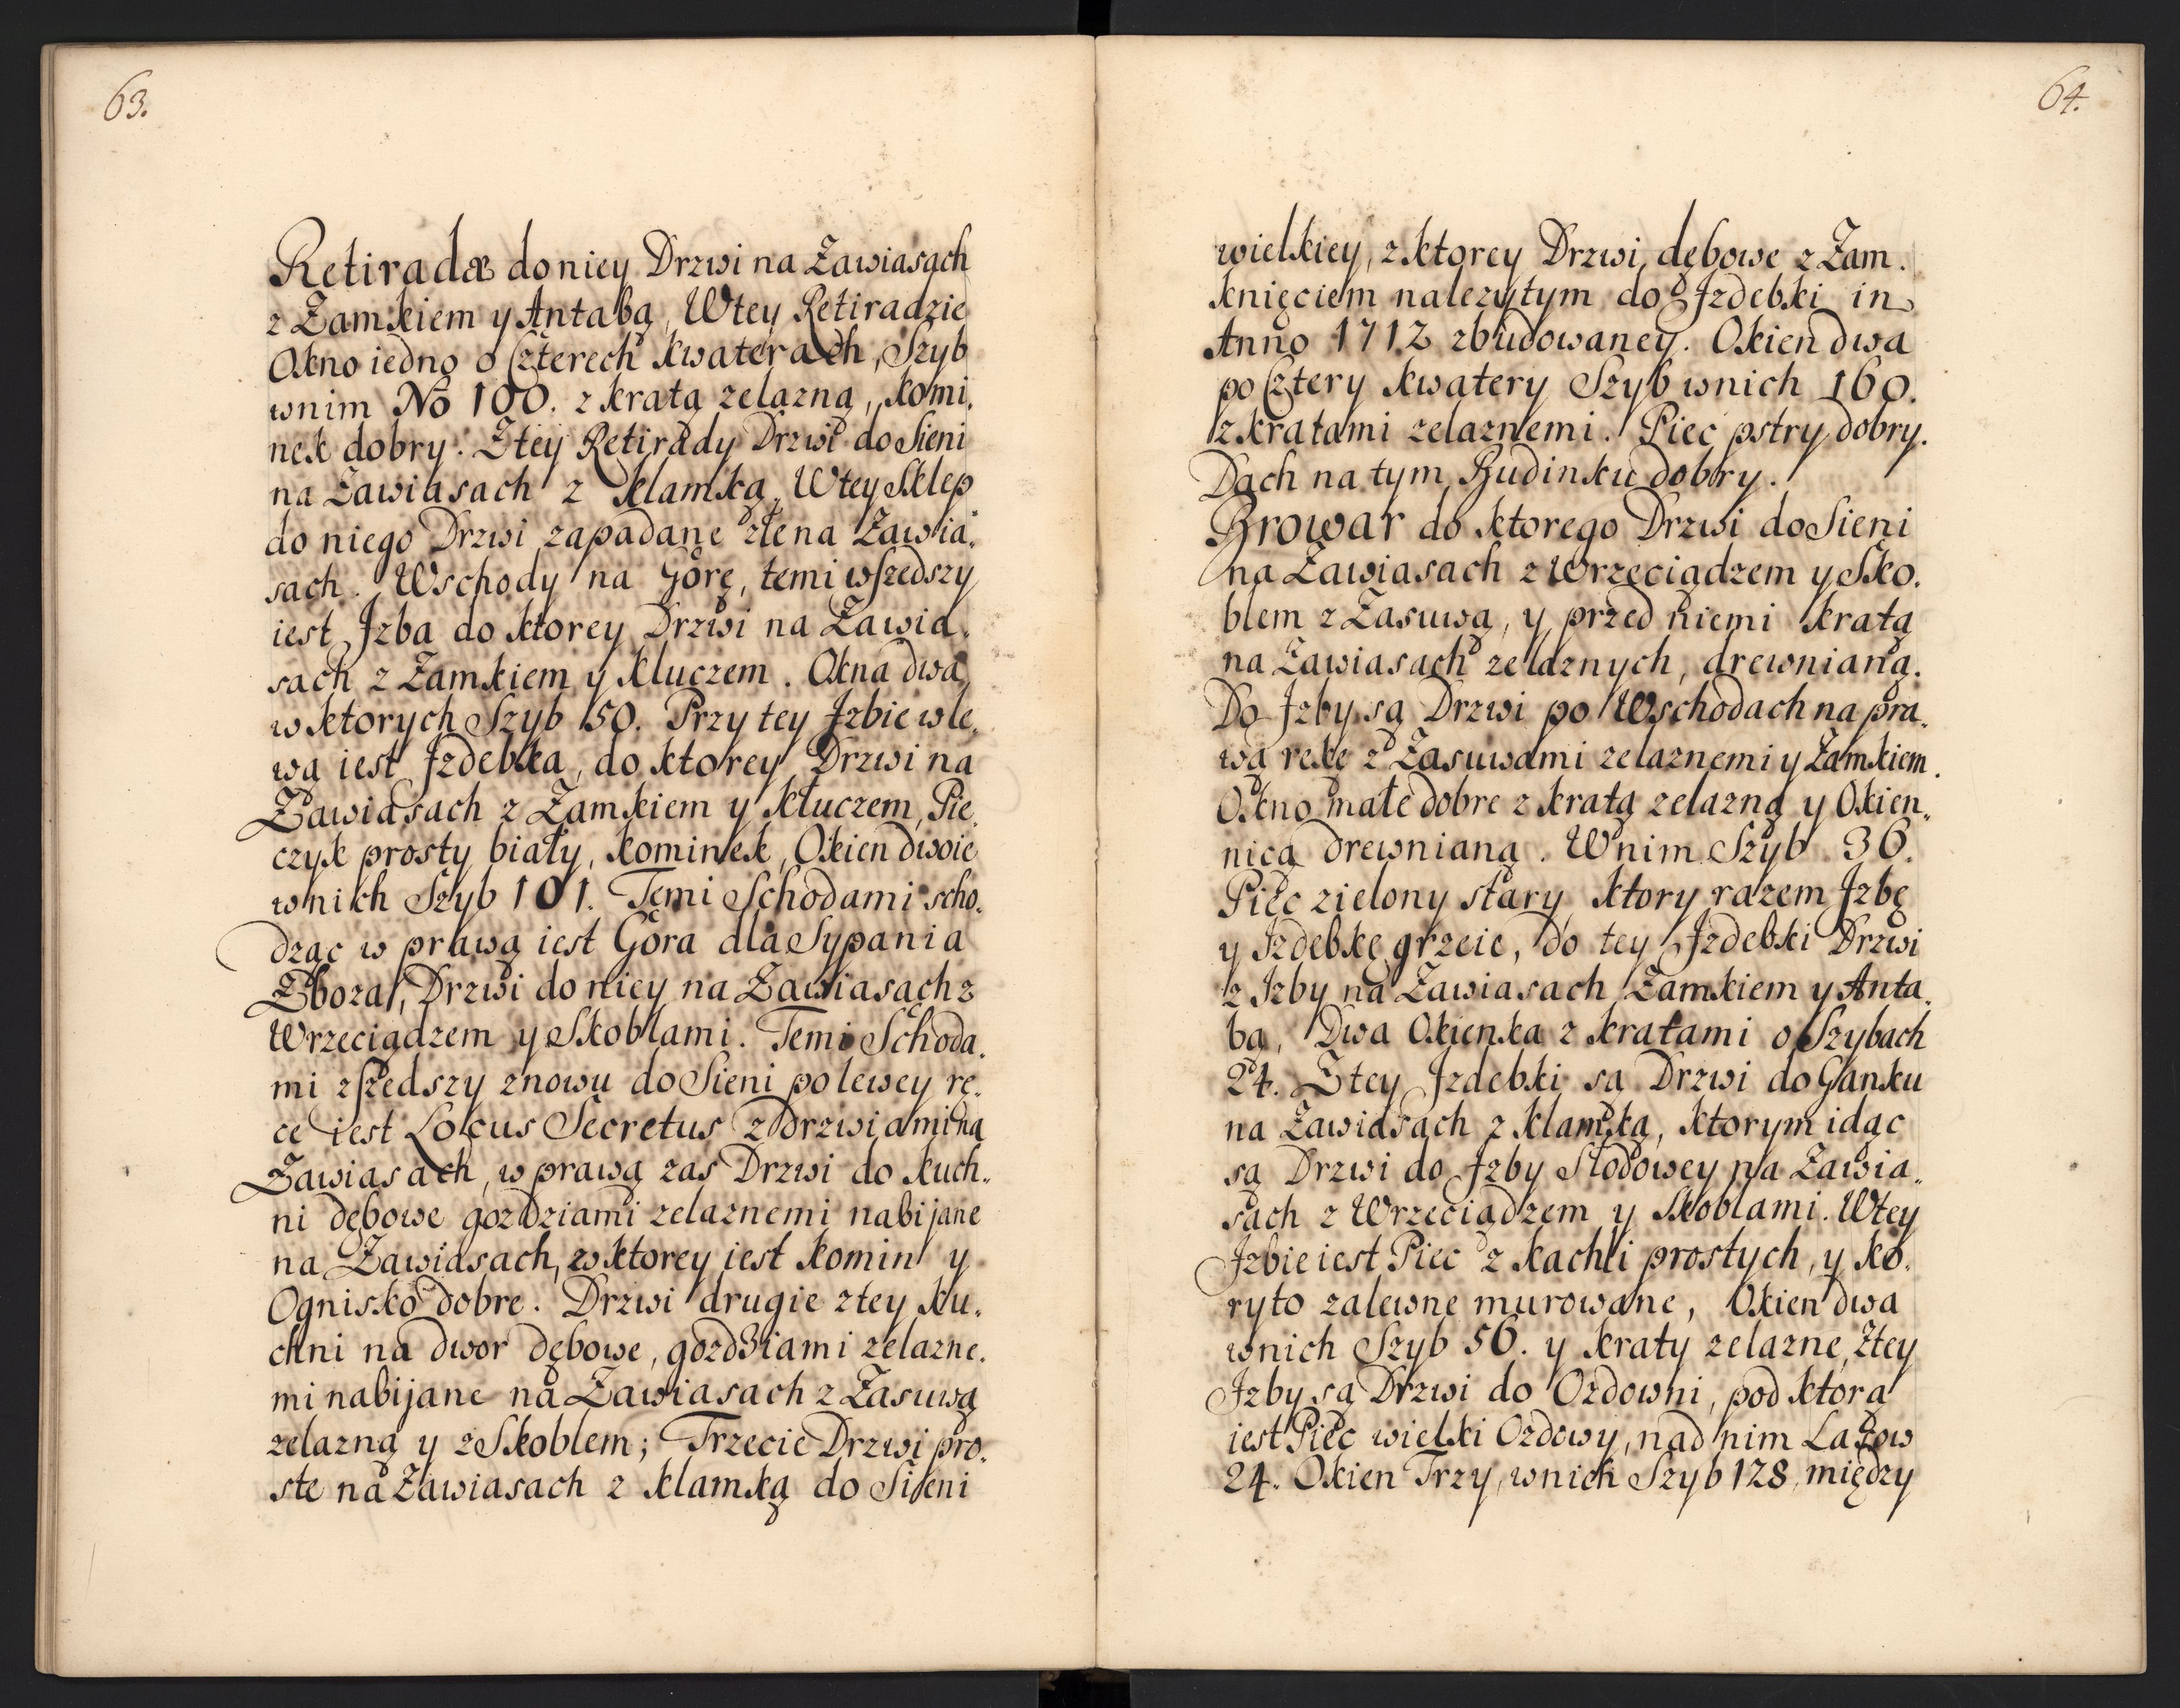 63.
Retirada do niey Drzwi na Zawiasach
z Zamkiem y Antabą, W tey Retiradzie
Okno iedno o Czterech kwaterach, Szyb
w nim No 100. z kratą zelazną, komi„
nek dobry. Z tey Retirady Drzwi do Sieni
na Zawiasach z klamką. W tey Sklep
do niego Drzwi zapadane złe na Zawia„
sach. Wschody na Górę, temi wszedszy
iest Jzba do ktorey Drzwi na Zawia„
sach z Zamkiem y kluczem. Okna dwa
w ktorych Szyb 50. Przy tey Jzbie w le„
wą iest Jzdebka, do ktorey Drzwi na
Zawiasach z Zamkiem y kluczem, Pie„
czyk prosty biały, kominek, Okien dwoie
w nich Szyb 101. Temi Schodami scho„
dząc w prawą iest Góra dla Sypania
Zboza, Drzwi do niey na Zawiasach z
Wrzeciądzem y Skoblami. Temi Schoda„
mi zszedszy znowu do Sieni po lewey rę„
ce iest Locus Secretus z Drzwiami na
Zawiasach, w prawą zas Drzwi do kuch„
ni dębowe gozdziami zelaznemi nabijane
na Zawiasach, w ktorey iest komin y
Ognisko dobre. Drzwi drugie z tey ku„
chni na dwor dębowe, gozdziami zelazne„
mi nabijane na Zawiasach z Zasuwą
zelazną y z Skoblem; Trzecie Drzwi pro„
ste na Zawiasach z klamką do Sieni
64.
wielkiey, z ktorey Drzwi dębowe z Zam„
knięciem nalezytym do Jzdebki in
Anno 1712 zbudowaney. Okien dwa
po Cztery kwatery Szyb w nich 160.
z kratami zelaznemi. Piec pstry dobry.
Dach na tym Budinku dobry.
Browar do ktorego Drzwi do Sieni
na Zawiasach z Wrzeciądzem y Sko„
blem z Zasuwą, y przed niemi kratą
na Zawiasach zelaznych, drewnianą.
Do Jzby są Drzwi po Wschodach na pra„
wą rekę z Zasuwami zelaznemi y Zamkiem.
Okno małe dobre z kratą zelazną y Okien„
nicą drewnianą. W nim Szyb 36.
Piec zielony stary, ktory razem Jzbę
y Jzdebkę grzeie, do tey Jzdebki Drzwi
z Jzby na Zawiasach Zamkiem y Anta„
bą, Dwa Okienka z kratami o Szybach
24. Z tey Jzdebki są Drzwi do Ganku
na Zawiasach z klamką, ktorym idąc
są Drzwi do Jzby Słodowey na Zawia„
sach z Wrzeciądzem y Skoblami. W tey
Jzbie iest Piec z kachli prostych, y ko„
ryto zalewne murowane, Okien dwa
w nich Szyb 56. y kraty zelazne, z tey
Jzby są Drzwi do Ozdowni, pod ktorą
iest Piec wielki Ozdowy, nad nim Lazow
24. Okien Trzy, w nich Szyb 128, między